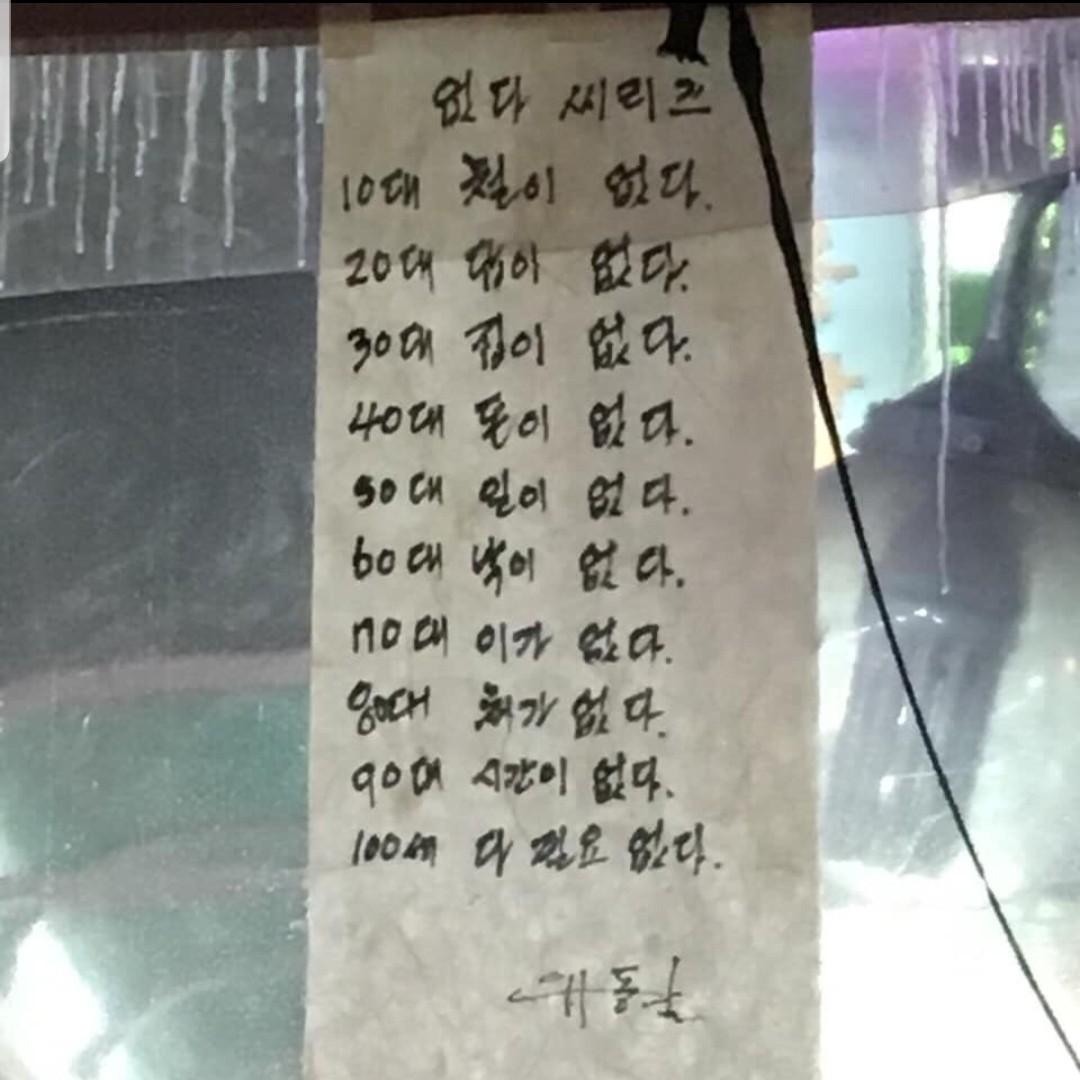 없다 씨리즈
10대 철이 없다.
20대 답이 없다.
30대 집이 없다.
40대 돈이 없다.
50대 일이 없다.
60대 낙이 없다.
70대 이가 없다.
80대 처가 없다.
90대 시간이 없다.
100세 다 필요 없다.